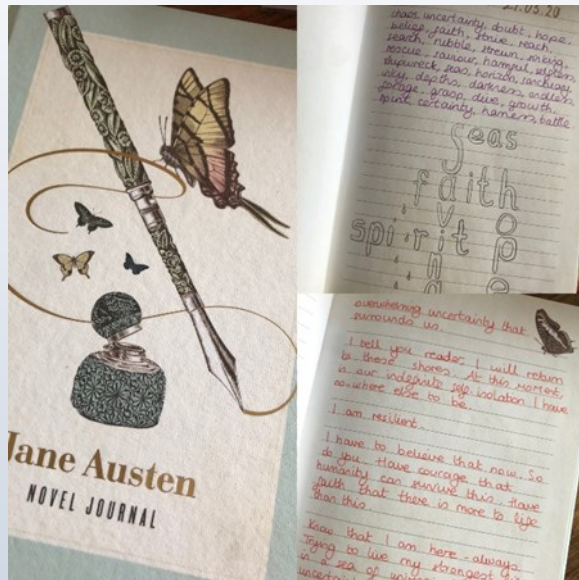 Jane Austen
NOVEL JOURNAL
21.05.20
chaos, uncertainty, doubt, hope,
belief, faith, strive, reach,
search, rubble, strewn, sinking,
rescue, saviour, harmful, selfless,
shipwreck, seas, horizon, sanctuary,
inky, depths, darkness, endless,
forage, grasp, dive, growth,
spirit, certainty, harness, battle
seas
faith
spirit
overwhelming uncertainty that
surrounds us.
I tell you reader, I will return
to these shores. At this moment,
in our indefinite self-isolation I have
no-where else to be.
I am resilient.
I have to believe that now. So
do you. Have courage that
humanity can survive this. Have
faith that there is more to life
than this.
Know that I am here - always.
Trying to live my strongest
in a sea of